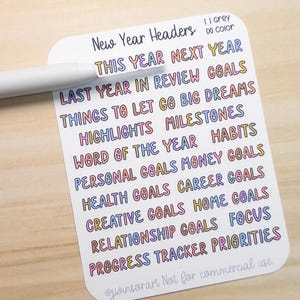 New Year Headers [ ] grey
[x] color
THIS YEAR NEXT YEAR
LAST YEAR IN REVIEW GOALS
THINGS TO LET GO BIG DREAMS
HIGHLIGHTS MILESTONES
WORD OF THE YEAR HABITS
PERSONAL GOALS MONEY GOALS
HEALTH GOALS CAREER GOALS
CREATIVE GOALS HOME GOALS
RELATIONSHIP GOALS FOCUS
PROGRESS TRACKER PRIORITIES
@jwinsorart Not for commercial use.